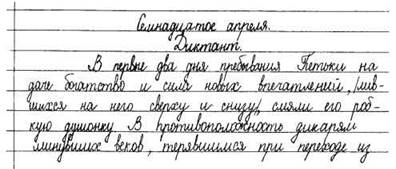 Семнадцатое апреля.
Диктант.
В первые два дня пребывания Петьки на
даче богатство и сила новых впечатлений, лив-
шихся на него сверху и снизу, смяли его роб-
кую душонку. В противоположность дикарям
минувших веков, терявшимся при переходе из